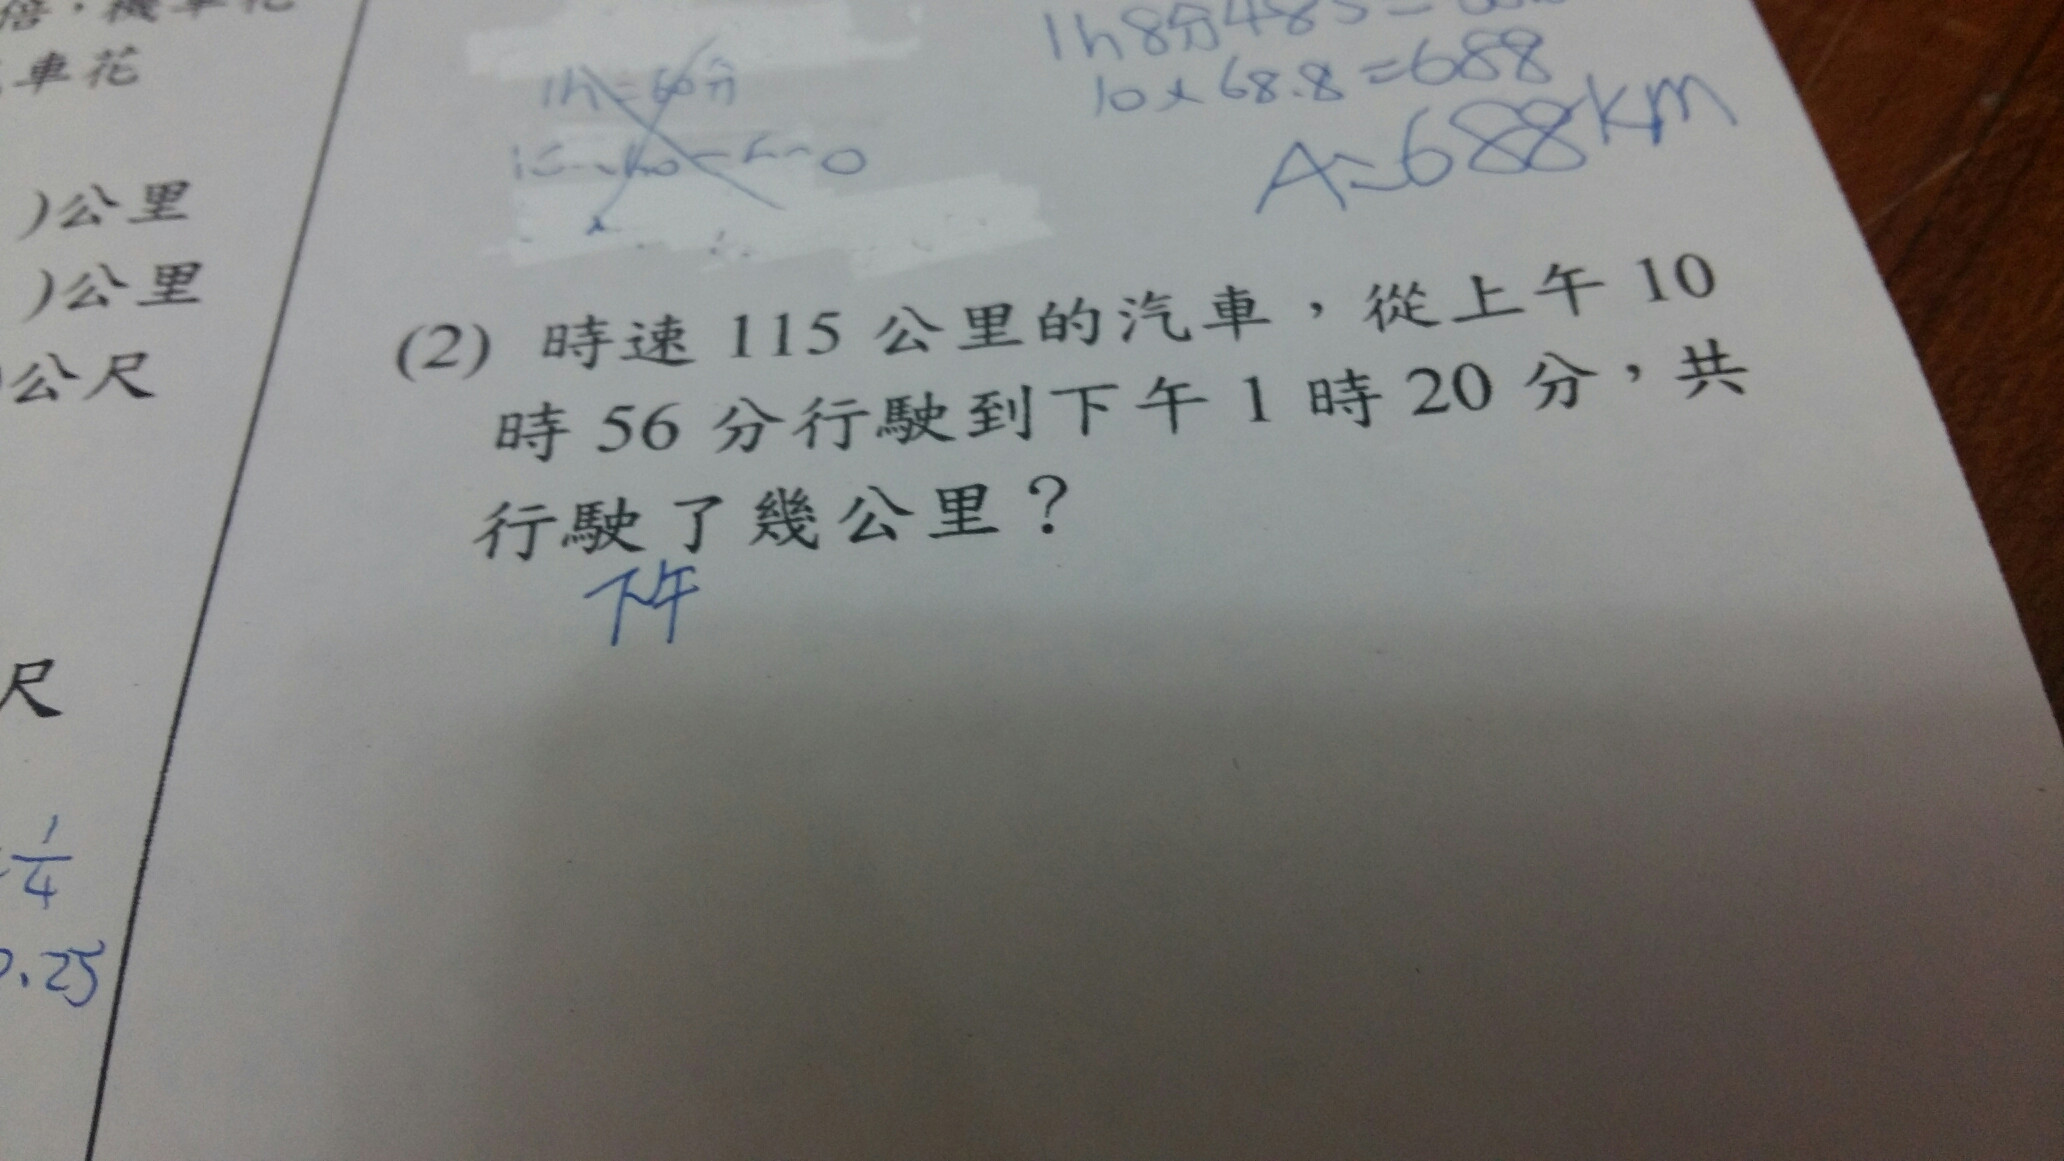 倍，機車花
車花
)公里
)公里
公尺
尺
1/4
.25
1h=60分
1h8分48s=
10×68.8=688
A=688km
(2) 時速 115 公里的汽車，從上午 10
時 56 分行駛到下午 1 時 20 分，共
行駛了幾公里？
下午